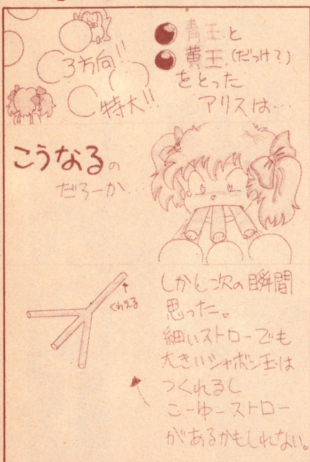 3方向!!
特大!!
青玉と
黄玉(だっけ?)
をとった
アリスは…
こうなるの
だろーか…
くわえる
しかし次の瞬間
思った。
細いストローでも
大きいシャボン玉は
つくれるし
こーゆーストロー
があるかもしれない。